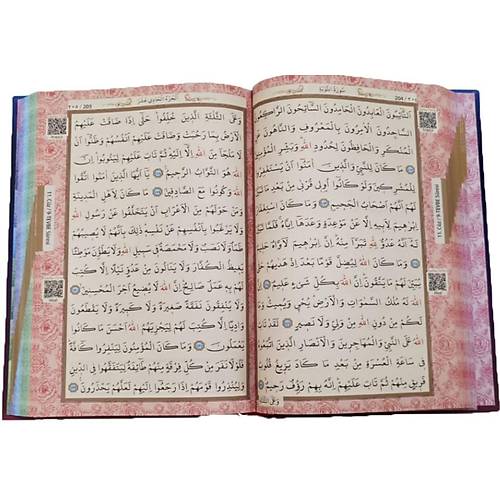 204 / ٢٠٤
سُورَةُ التَّوْبَةِ
اَلتَّٓائِبُونَ الْعَابِدُونَ الْحَامِدُونَ السَّٓائِحُونَ الرَّاكِعُونَ
السَّاجِدُونَ الْاٰمِرُونَ بِالْمَعْرُوفِ وَالنَّاهُونَ عَنِ
الْمُنْكَرِ وَالْحَافِظُونَ لِحُدُودِ اللّٰهِ وَبَشِّرِ الْمُؤْمِنِينَ ﴿١١٢﴾
مَا كَانَ لِلنَّبِيِّ وَالَّذِينَ اٰمَنُٓوا اَنْ يَسْتَغْفِرُوا
لِلْمُشْرِكِينَ وَلَوْ كَانُٓوا اُو۬لِي قُرْبٰى مِنْ بَعْدِ مَا تَبَيَّنَ
لَهُمْ اَنَّهُمْ اَصْحَابُ الْجَحِيمِ ﴿١١٣﴾ وَمَا كَانَ اسْتِغْفَارُ
اِبْرٰهِيمَ لِاَبِيهِ اِلَّا عَنْ مَوْعِدَةٍ وَعَدَهَٓا اِيَّاهُ فَلَمَّا تَبَيَّنَ
لَهُٓ اَنَّهُ عَدُوٌّ لِلّٰهِ تَبَرَّاَ مِنْهُ اِنَّ اِبْرٰهِيمَ لَاَوَّاهٌ حَلِيمٌ
﴿١١٤﴾ وَمَا كَانَ اللّٰهُ لِيُضِلَّ قَوْمًا بَعْدَ اِذْ هَدٰيهُمْ حَتّٰى
يُبَيِّنَ لَهُمْ مَا يَتَّقُونَ اِنَّ اللّٰهَ بِكُلِّ شَيْءٍ عَلِيمٌ ﴿١١٥﴾ اِنَّ
اللّٰهَ لَهُ مُلْكُ السَّمٰوَاتِ وَالْاَرْضِ يُحْيِي وَيُمِيتُ وَمَا
لَكُمْ مِنْ دُونِ اللّٰهِ مِنْ وَلِيٍّ وَلَا نَصِيرٍ ﴿١١٦﴾ لَقَدْ تَابَ
اللّٰهُ عَلَى النَّبِيِّ وَالْمُهَاجِرِينَ وَالْاَنْصَارِ الَّذِينَ اتَّبَعُوهُ
فِي سَاعَةِ الْعُسْرَةِ مِنْ بَعْدِ مَا كَادَ يَزِيغُ قُلُوبُ
فَرِيقٍ مِنْهُمْ ثُمَّ تَابَ عَلَيْهِمْ اِنَّهُ بِهِمْ رَؤُفٌ رَحِيمٌ ﴿١١٧﴾
اَلْجُزْءُ الْحَادِي عَشَرَ
٢٠٥ / 205
وَعَلَى الثَّلٰثَةِ الَّذِينَ خُلِّفُوا حَتّٰٓى اِذَا ضَاقَتْ عَلَيْهِمُ
الْاَرْضُ بِمَا رَحُبَتْ وَضَاقَتْ عَلَيْهِمْ اَنْفُسُهُمْ وَظَنُّٓوا اَنْ
لَا مَلْجَاَ مِنَ اللّٰهِ اِلَّٓا اِلَيْهِ ثُمَّ تَابَ عَلَيْهِمْ لِيَتُوبُوا اِنَّ
اللّٰهَ هُوَ التَّوَّابُ الرَّحِيمُ ﴿١١٨﴾ يَٓا اَيُّهَا الَّذِينَ اٰمَنُوا اتَّقُوا
اللّٰهَ وَكُونُوا مَعَ الصَّادِقِينَ ﴿١١٩﴾ مَا كَانَ لِاَهْلِ الْمَدِينَةِ
وَمَنْ حَوْلَهُمْ مِنَ الْاَعْرَابِ اَنْ يَتَخَلَّفُوا عَنْ رَسُولِ اللّٰهِ
وَلَا يَرْغَبُوا بِاَنْفُسِهِمْ عَنْ نَفْسِهِ ذٰلِكَ بِاَنَّهُمْ لَا يُصِيبُهُمْ
ظَمَاٌ وَلَا نَصَبٌ وَلَا مَخْمَصَةٌ فِي سَبِيلِ اللّٰهِ وَلَا يَطَؤُ۫نَ مَوْطِئًا
يَغِيظُ الْكُفَّارَ وَلَا يَنَالُونَ مِنْ عَدُوٍّ نَيْلًا اِلَّا كُتِبَ
لَهُمْ بِهِ عَمَلٌ صَالِحٌ اِنَّ اللّٰهَ لَا يُضِيعُ اَجْرَ الْمُحْسِنِينَ ﴿١٢٠﴾
وَلَا يُنْفِقُونَ نَفَقَةً صَغِيرَةً وَلَا كَبِيرَةً وَلَا يَقْطَعُونَ
وَادِيًا اِلَّا كُتِبَ لَهُمْ لِيَجْزِيَهُمُ اللّٰهُ اَحْسَنَ مَا كَانُوا
يَعْمَلُونَ ﴿١٢١﴾ وَمَا كَانَ الْمُؤْمِنُونَ لِيَنْفِرُوا كَٓافَّةً
فَلَوْلَا نَفَرَ مِنْ كُلِّ فِرْقَةٍ مِنْهُمْ طَٓائِفَةٌ لِيَتَفَقَّهُوا فِي الدِّينِ
وَلِيُنْذِرُوا قَوْمَهُمْ اِذَا رَجَعُٓوا اِلَيْهِمْ لَعَلَّهُمْ يَحْذَرُونَ ﴿١٢٢﴾